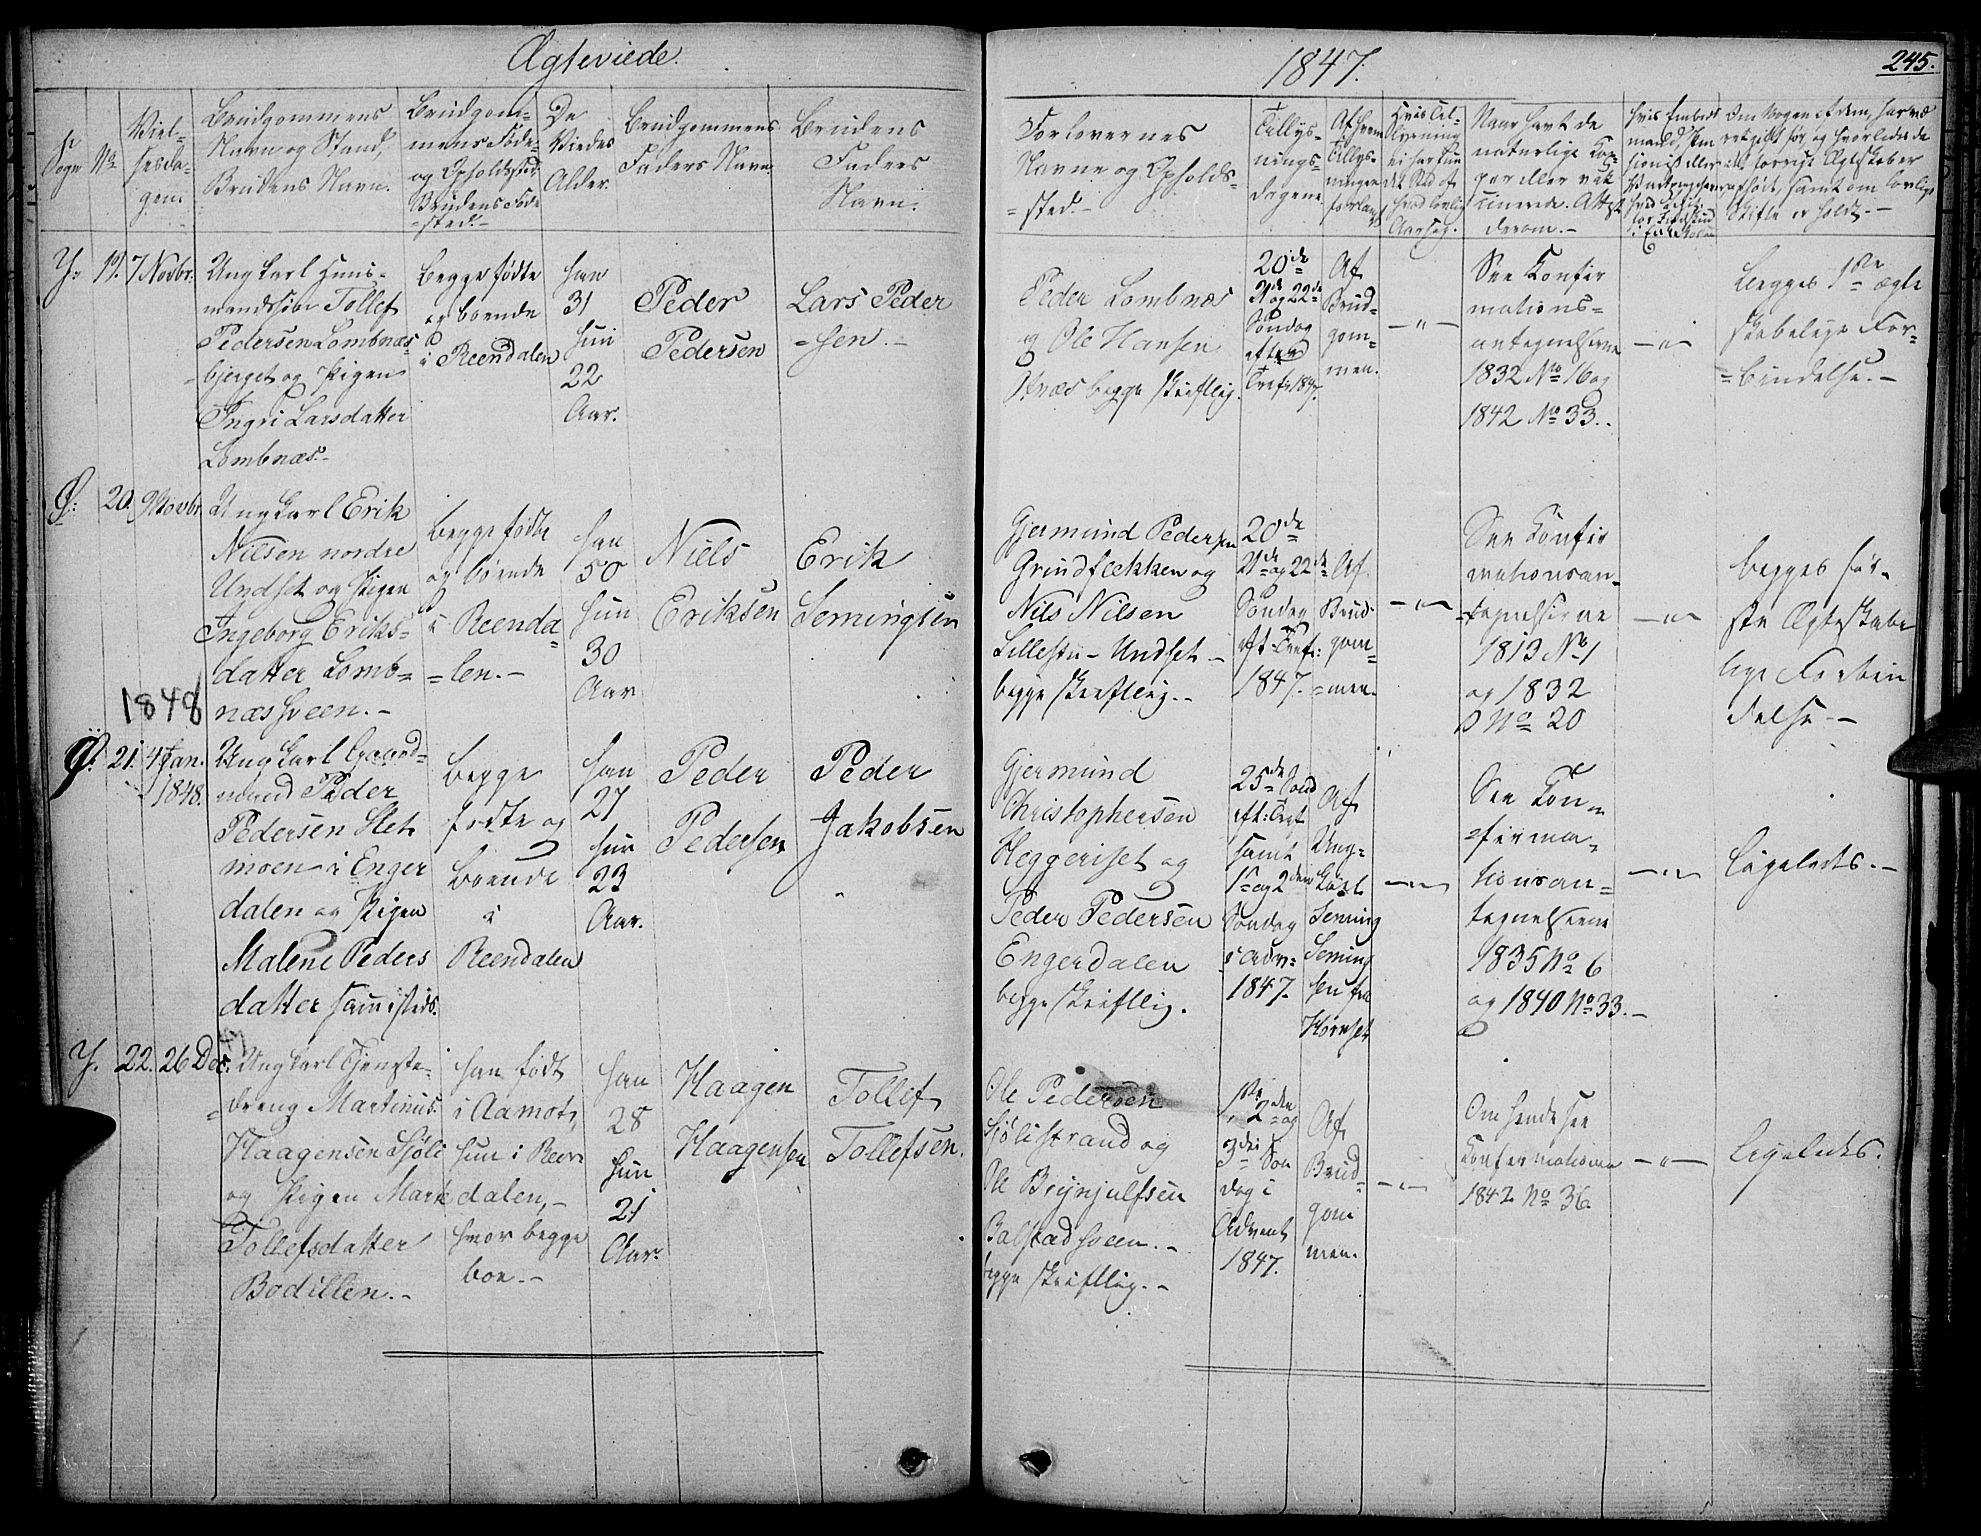 Ægteviede.
1847.
245.
Sogn
No
Viel-
sesda-
gen.
Brudgommens
Navn og Stand,
Brudens Navn.
Brudgom-
mens Føde-
og Opholdssted
Brudens Føde
=sted.-
De
Viedes
Alder.
Brudgommens
Faders Navn.
Brudens
Faders
Navn.
Forlovernes
Navne og Opholds-
=sted.-
Tillys-
nings-
dagene
Af hvem
Tillys-
ningen
forlangt
Naar havt de
naturlige Kop-
per eller vak
cinerede. Attest
derom.-
Y. 19. 7 Novbr.
Ungkarl Huus-
mandssøn Tollef
Pedersen Lombnæs-
bjerget og Pigen
Ingri Larsdatter
Lombnæs.-
begge fødte
og boende
i Reendalen
han
31
hun
22
Aar.
Peder
Pedersen
Lars Peder
=sen.-
Peder Lombnæs
og Ole Hansen
begge skriftlig.
20de
21de og 22de
Søndag
efter
Tref. 1847.
Af
Brud-
gom-
men.
-"-
See Konfir
mations-
antegnelserne
1832 No 16 og
1842 No 33.
-"-
begges 1ste ægte
skabelige For-
=bindelse.-
Ø: 20. 9 Novbr.
Ungkarl Erik
Nilsen nordre
Undset og Pigen
Ingeborg Eriks-
datter Lomb-
næs sveen.-
begge fødte
og boende
i Reenda=
=len.-
han
50
hun
30
Aar
Niels
Eriksen
Erik
Semingsen
Gjermund Pedersen
Grindflekken og
Nils Nilsen
Lillestu- Undset-
begge skriftlig.-
20de
21de og 22de
Søndag
eft: Tref:
1847.
Af
Brud-
gom=
=men.
-"-
See Konfir
mationsan-
=tegnelserne
1813 No 1
og 1832
No 20
-"-
begges før-
ste Ægteskabe
lige Forbin
delse.-
1848
Ø: 21. 4 Jan.
1848.
Ungkarl Gaard-
mand Peder
Pedersen Slet
moen i Enger
dalen og Pigen
Malene Peders
datter sammesteds.
begge
fødte og
boende
i
Reendalen
han
27
hun
23
Aar.
Peder
Pedersen
Peder
Jakobsen
Gjermund
Christophersen
Heggeriset og
Peder Pedersen
Engerdalen
begge skriftlig.
25de Sønd
eft: Tref
samt
1ste og 2den
Søndag
i Adv-
1847.
Af
Ung-
karl
Seming
Seming
sen fra
Hornset
-"-
See Kon-
=firma-
tionsan-
tegnelserne
1835 No 6
og 1840 No 33.-
-"-
ligeledes.-
Y. 22. 26 Dec.
Ungkarl Tjeneste-
=dreng Martinus
Haagensen Sjøli
og Pigen Marte
Tollefsdatter
Bodillen.-
han født
i Aamot,
hun i Reen
dalen,-
hvor begge
boe.-
han
28
hun
21
Aar.
Haagen
Haagensen
Tollef
Tollefsen.
Ole Pedersen
Sjølistrand og
Ole Brynjulfsen
Balstadsveen.-
begge skriftlig.-
1ste
2den og
3die Søn
dag i
Advent
1847.
Af
Brud-
gom
men.
-"-
Om hende see
Konfirmationen
1842 No 36.
-"-
ligeledes.